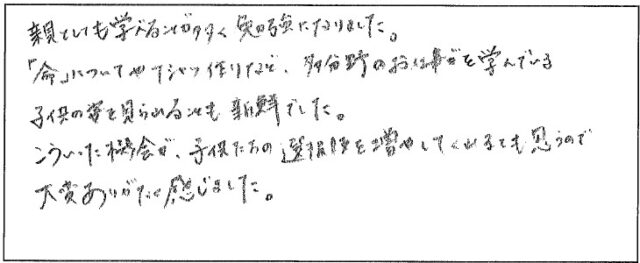 親としても学べることが多く勉強になりました。
「命」についてやTシャツ作りなど、多分野のお仕事を学んでいる
子供の姿を見られることも新鮮でした。
こういった機会が、子供たちの選択肢を増やしてくれるとも思うので
大変ありがたく感じました。